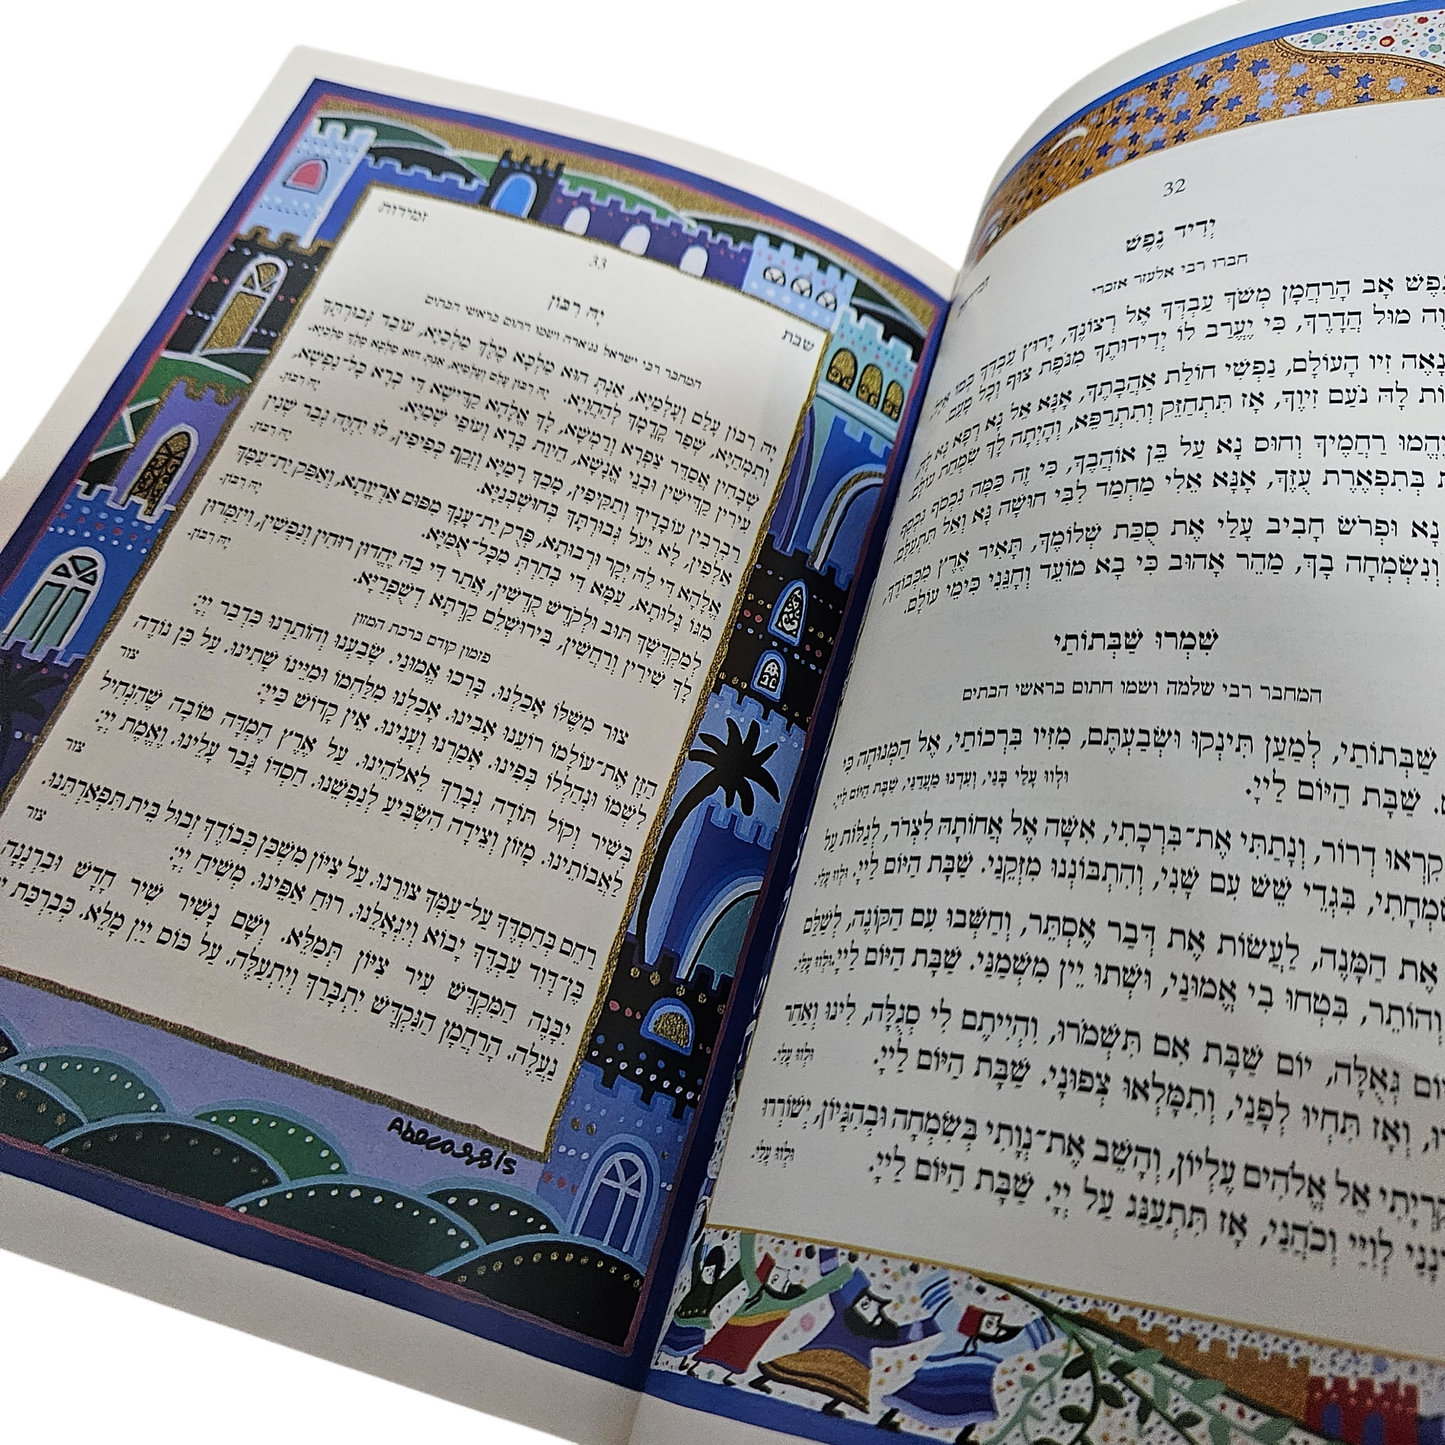 32
יְדִיד נֶפֶשׁ
חברו רבי אלעזר אזכרי
נֶפֶשׁ אָב הָרַחֲמָן מְשֹׁךְ עַבְדְּךָ אֶל רְצוֹנֶךָ, יָרוּץ עַבְדְּךָ כְּמוֹ אַיָּל,
מוּל הֲדָרֶךָ, כִּי יֶעֱרַב לוֹ יְדִידוּתְךָ מִנֹּפֶת צוּף וְכָל טָעַם.
נָאֶה זִיו הָעוֹלָם, נַפְשִׁי חוֹלַת אַהֲבָתֶךָ, אָנָּא אֵל נָא רְפָא נָא לָהּ,
לָהּ נֹעַם זִיוֶךָ, אָז תִּתְחַזֵּק וְתִתְרַפֵּא, וְהָיְתָה לָךְ שִׂמְחַת עוֹלָם.
יֶהֱמוּ רַחֲמֶיךָ וְחוּס נָא עַל בֵּן אוֹהֲבֶךָ, כִּי זֶה כַּמָּה נִכְסוֹף נִכְסַף
בְּתִפְאֶרֶת עֻזֶּךָ, אָנָּא אֵלִי מַחְמַד לִבִּי חוּשָׁה נָּא וְאַל תִּתְעַלָּם.
נָא וּפְרֹשׂ חָבִיב עָלַי אֶת סֻכַּת שְׁלוֹמֶךָ, תָּאִיר אֶרֶץ מִכְּבוֹדֶךָ,
וְנִשְׂמְחָה בָּךְ, מַהֵר אָהוּב כִּי בָא מוֹעֵד וְחָנֵּנִי כִּימֵי עוֹלָם.
שִׁמְרוּ שַׁבְּתוֹתַי
המחבר רבי שלמה ושמו חתום בראשי הבתים
שַׁבְּתוֹתַי, לְמַעַן תִּינְקוּ וּשְׂבַעְתֶּם, מִזִּיו בִּרְכוֹתַי, אֶל הַמְּנוּחָה כִּי
שַׁבָּת הַיּוֹם לַייָ. וּלְווּ עָלַי בָּנַי, וְעִדְנוּ מַעֲדַנַּי, שַׁבָּת הַיּוֹם לַייָ.
קִרְאוּ דְרוֹר, וְנָתַתִּי אֶת־בִּרְכָתִי, אִשָּׁה אֶל אֲחוֹתָהּ לִצְרֹר, לְגַלּוֹת עַל
שִׂמְחָתִי, בִּגְדֵי שֵׁשׁ עִם שָׁנִי, וְהִתְבּוֹנְנוּ מִזְּקֵנַי. שַׁבָּת הַיּוֹם לַייָ. וּלְווּ עָלַי.
אֶת הַמָּנֶה, לַעֲשׂוֹת אֶת דְּבַר אֶסְתֵּר, וְחִשְּׁבוּ עִם הַקּוֹנֶה, לְשַׁלֵּם
וְהוֹתֵר, בִּטְחוּ בִי אֱמוּנַי, וּשְׁתוּ יֵין מִשְׁמַנַּי. שַׁבָּת הַיּוֹם לַייָ. וּלְווּ עָלַי.
גְּאֻלָּה, יוֹם שַׁבָּת אִם תִּשְׁמֹרוּ, וִהְיִיתֶם לִי סְגֻלָּה, לִינוּ וְאַחַר
וְאָז תִּחְיוּ לְפָנַי, וְתִמָּלְאוּ צְפוּנַי. שַׁבָּת הַיּוֹם לַייָ. וּלְווּ עָלַי.
קִרְיָתִי אֵל אֱלֹהִים עֶלְיוֹן, וְהָשֵׁב אֶת־נְוָתִי בְּשִׂמְחָה וּבְהִגָּיוֹן, יְשׁוֹרְרוּ
לְוִיַּי וְכֹהֲנַי, אָז תִּתְעַנַּג עַל יְיָ. שַׁבָּת הַיּוֹם לַייָ. וּלְווּ עָלַי.
שבת
33
זמירות
יָהּ רִבּוֹן
המחבר רבי ישראל נגיארה ושמו חתום בראשי הבתים
יָהּ רִבּוֹן עָלַם וְעָלְמַיָּא, אַנְתְּ הוּא מַלְכָּא מֶלֶךְ מַלְכַיָּא, עוֹבַד גְּבוּרְתֵּךְ
וְתִמְהַיָּא, שְׁפַר קֳדָמָךְ לְהַחֲוָיָא. יָהּ רִבּוֹן עָלַם וְעָלְמַיָּא, אַנְתְּ הוּא מַלְכָּא מֶלֶךְ מַלְכַיָּא.
שְׁבָחִין אֲסַדֵּר צַפְרָא וְרַמְשָׁא, לָךְ אֱלָהָא קַדִּישָׁא דִּי בְרָא כָּל־נַפְשָׁא,
עִירִין קַדִּישִׁין וּבְנֵי אֱנָשָׁא, חֵיוַת בָּרָא וְעוֹפֵי שְׁמַיָּא. יָהּ רִבּוֹן.
רַבְרְבִין עוֹבְדָיךְ וְתַקִּיפִין, מָכִךְ רָמַיָּא וְזָקֵף כְּפִיפִין, לוּ יִחְיֶה גְּבַר שְׁנִין
אַלְפִין, לָא יֵעֹל גְּבוּרְתֵּךְ בְּחוּשְׁבְּנַיָּא. יָהּ רִבּוֹן.
אֱלָהָא דִּי לֵהּ יְקַר וּרְבוּתָא, פְּרֹק יַת־עָנָךְ מִפּוּם אַרְיָוָתָא, וְאַפֵּק יַת־עַמָּךְ
מִגּוֹ גָלוּתָא, עַמָּא דִּי בְחַרְתְּ מִכָּל־אֻמַּיָּא. יָהּ רִבּוֹן.
לְמִקְדָּשָׁךְ תּוּב וּלְקֹדֶשׁ קֻדְשִׁין, אֲתַר דִּי בֵהּ יֶחֱדוּן רוּחִין וְנַפְשִׁין, וִיזַמְּרוּן
לָךְ שִׁירִין וְרַחֲשִׁין, בִּירוּשְׁלֵם קַרְתָּא דְשֻׁפְרַיָּא. יָהּ רִבּוֹן.
פזמון קודם ברכת המזון
צוּר מִשֶּׁלּוֹ אָכַלְנוּ. בָּרְכוּ אֱמוּנַי. שָׂבַעְנוּ וְהוֹתַרְנוּ כִּדְבַר יְיָ:
הַזָּן אֶת־עוֹלָמוֹ רוֹעֵנוּ אָבִינוּ. אָכַלְנוּ מִלַּחְמוֹ וּמִיֵּינוֹ שָׁתִינוּ. עַל כֵּן נוֹדֶה
לִשְׁמוֹ וּנְהַלְלוֹ בְּפִינוּ. אָמַרְנוּ וְעָנִינוּ. אֵין קָדוֹשׁ כַּייָ: צור
בְּשִׁיר וְקוֹל תּוֹדָה נְבָרֵךְ לֵאלֹהֵינוּ. עַל אֶרֶץ חֶמְדָּה טוֹבָה שֶׁהִנְחִיל
לַאֲבוֹתֵינוּ. מָזוֹן וְצֵידָה הִשְׂבִּיעַ לְנַפְשֵׁנוּ. חַסְדּוֹ גָּבַר עָלֵינוּ. וֶאֱמֶת יְיָ: צור
רַחֵם בְּחַסְדֶּךָ עַל־עַמְּךָ צוּרֵנוּ. עַל צִיּוֹן מִשְׁכַּן כְּבוֹדֶךָ זְבוּל בֵּית תִּפְאַרְתֵּנוּ.
בֶּן־דָּוִד עַבְדֶּךָ יָבוֹא וְיִגְאָלֵנוּ. רוּחַ אַפֵּינוּ. מְשִׁיחַ יְיָ: צור
יִבָּנֶה הַמִּקְדָּשׁ עִיר צִיּוֹן תְּמַלֵּא. וְשָׁם נָשִׁיר שִׁיר חָדָשׁ וּבִרְנָנָה
נַעֲלֶה. הָרַחֲמָן הַנִּקְדָּשׁ יִתְבָּרַךְ וְיִתְעַלֶּה. עַל כּוֹס יַיִן מָלֵא. כְּבִרְכַּת
Abecassis